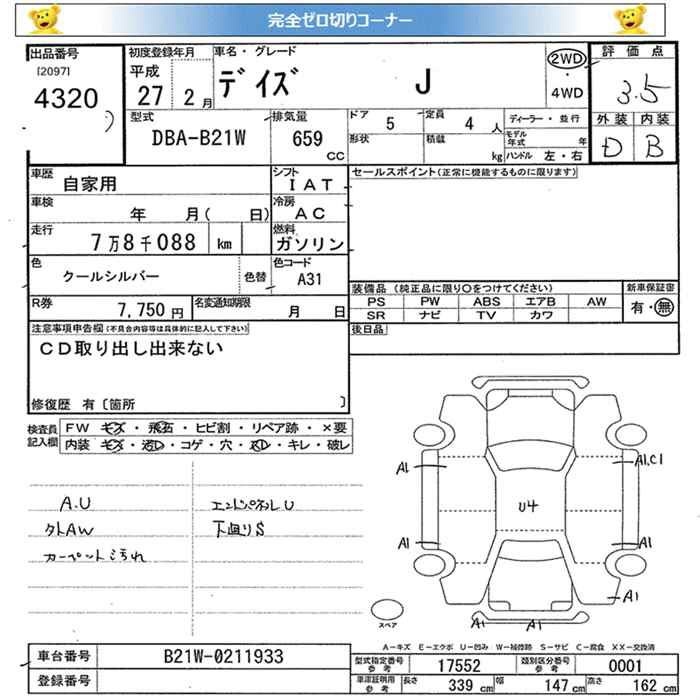 完全ゼロ切りコーナー
出品番号 初度登録年月 車名・グレード 評価点
[2097] 平成 デイズ J 2WD 3.5
4320 27 2月 ・4WD
型式 排気量 ドア 5 定員 4人 ディーラー・並行 外装 内装
DBA-B21W 659cc 形状 積載 kg モデル年式 年 D B
ハンドル 左・右
車歴 自家用 シフト IAT セールスポイント(正常に機能するものに限ります)
車検 年 月( 日) 冷房 AC
走行 7万8千088 km 燃料 ガソリン
色 クールシルバー 色替 色コード A31
装備品 (純正品に限り○をつけてください) 新車保証書
R券 7,750円 名変通知期限 月 日 PS PW ABS エアB AW 有・無
SR ナビ TV カワ
注意事項申告欄(不具合内容等は具体的に記入して下さい) 後日品
CD取り出し出来ない
修復歴 有〔箇所 〕
検査員記入欄 FW キズ・飛石・ヒビ割・リペア跡・×要
内装・キズ・汚レ・コゲ・穴・スレ・キレ・破レ
A1 A1,C1
A.U エンドパネルU U4
外AW 下廻りS
カーペット汚れ A1 A1
A1
スペア A1 A1
A-キズ E-エクボ U-凹み W-補修跡 S-サビ C-腐食 XX-交換済
車台番号 B21W-0211933 型式指定番号 参考 17552 類別区分番号 参考 0001
登録番号 車庫証明用 参考 長さ 339cm 幅 147cm 高さ 162cm